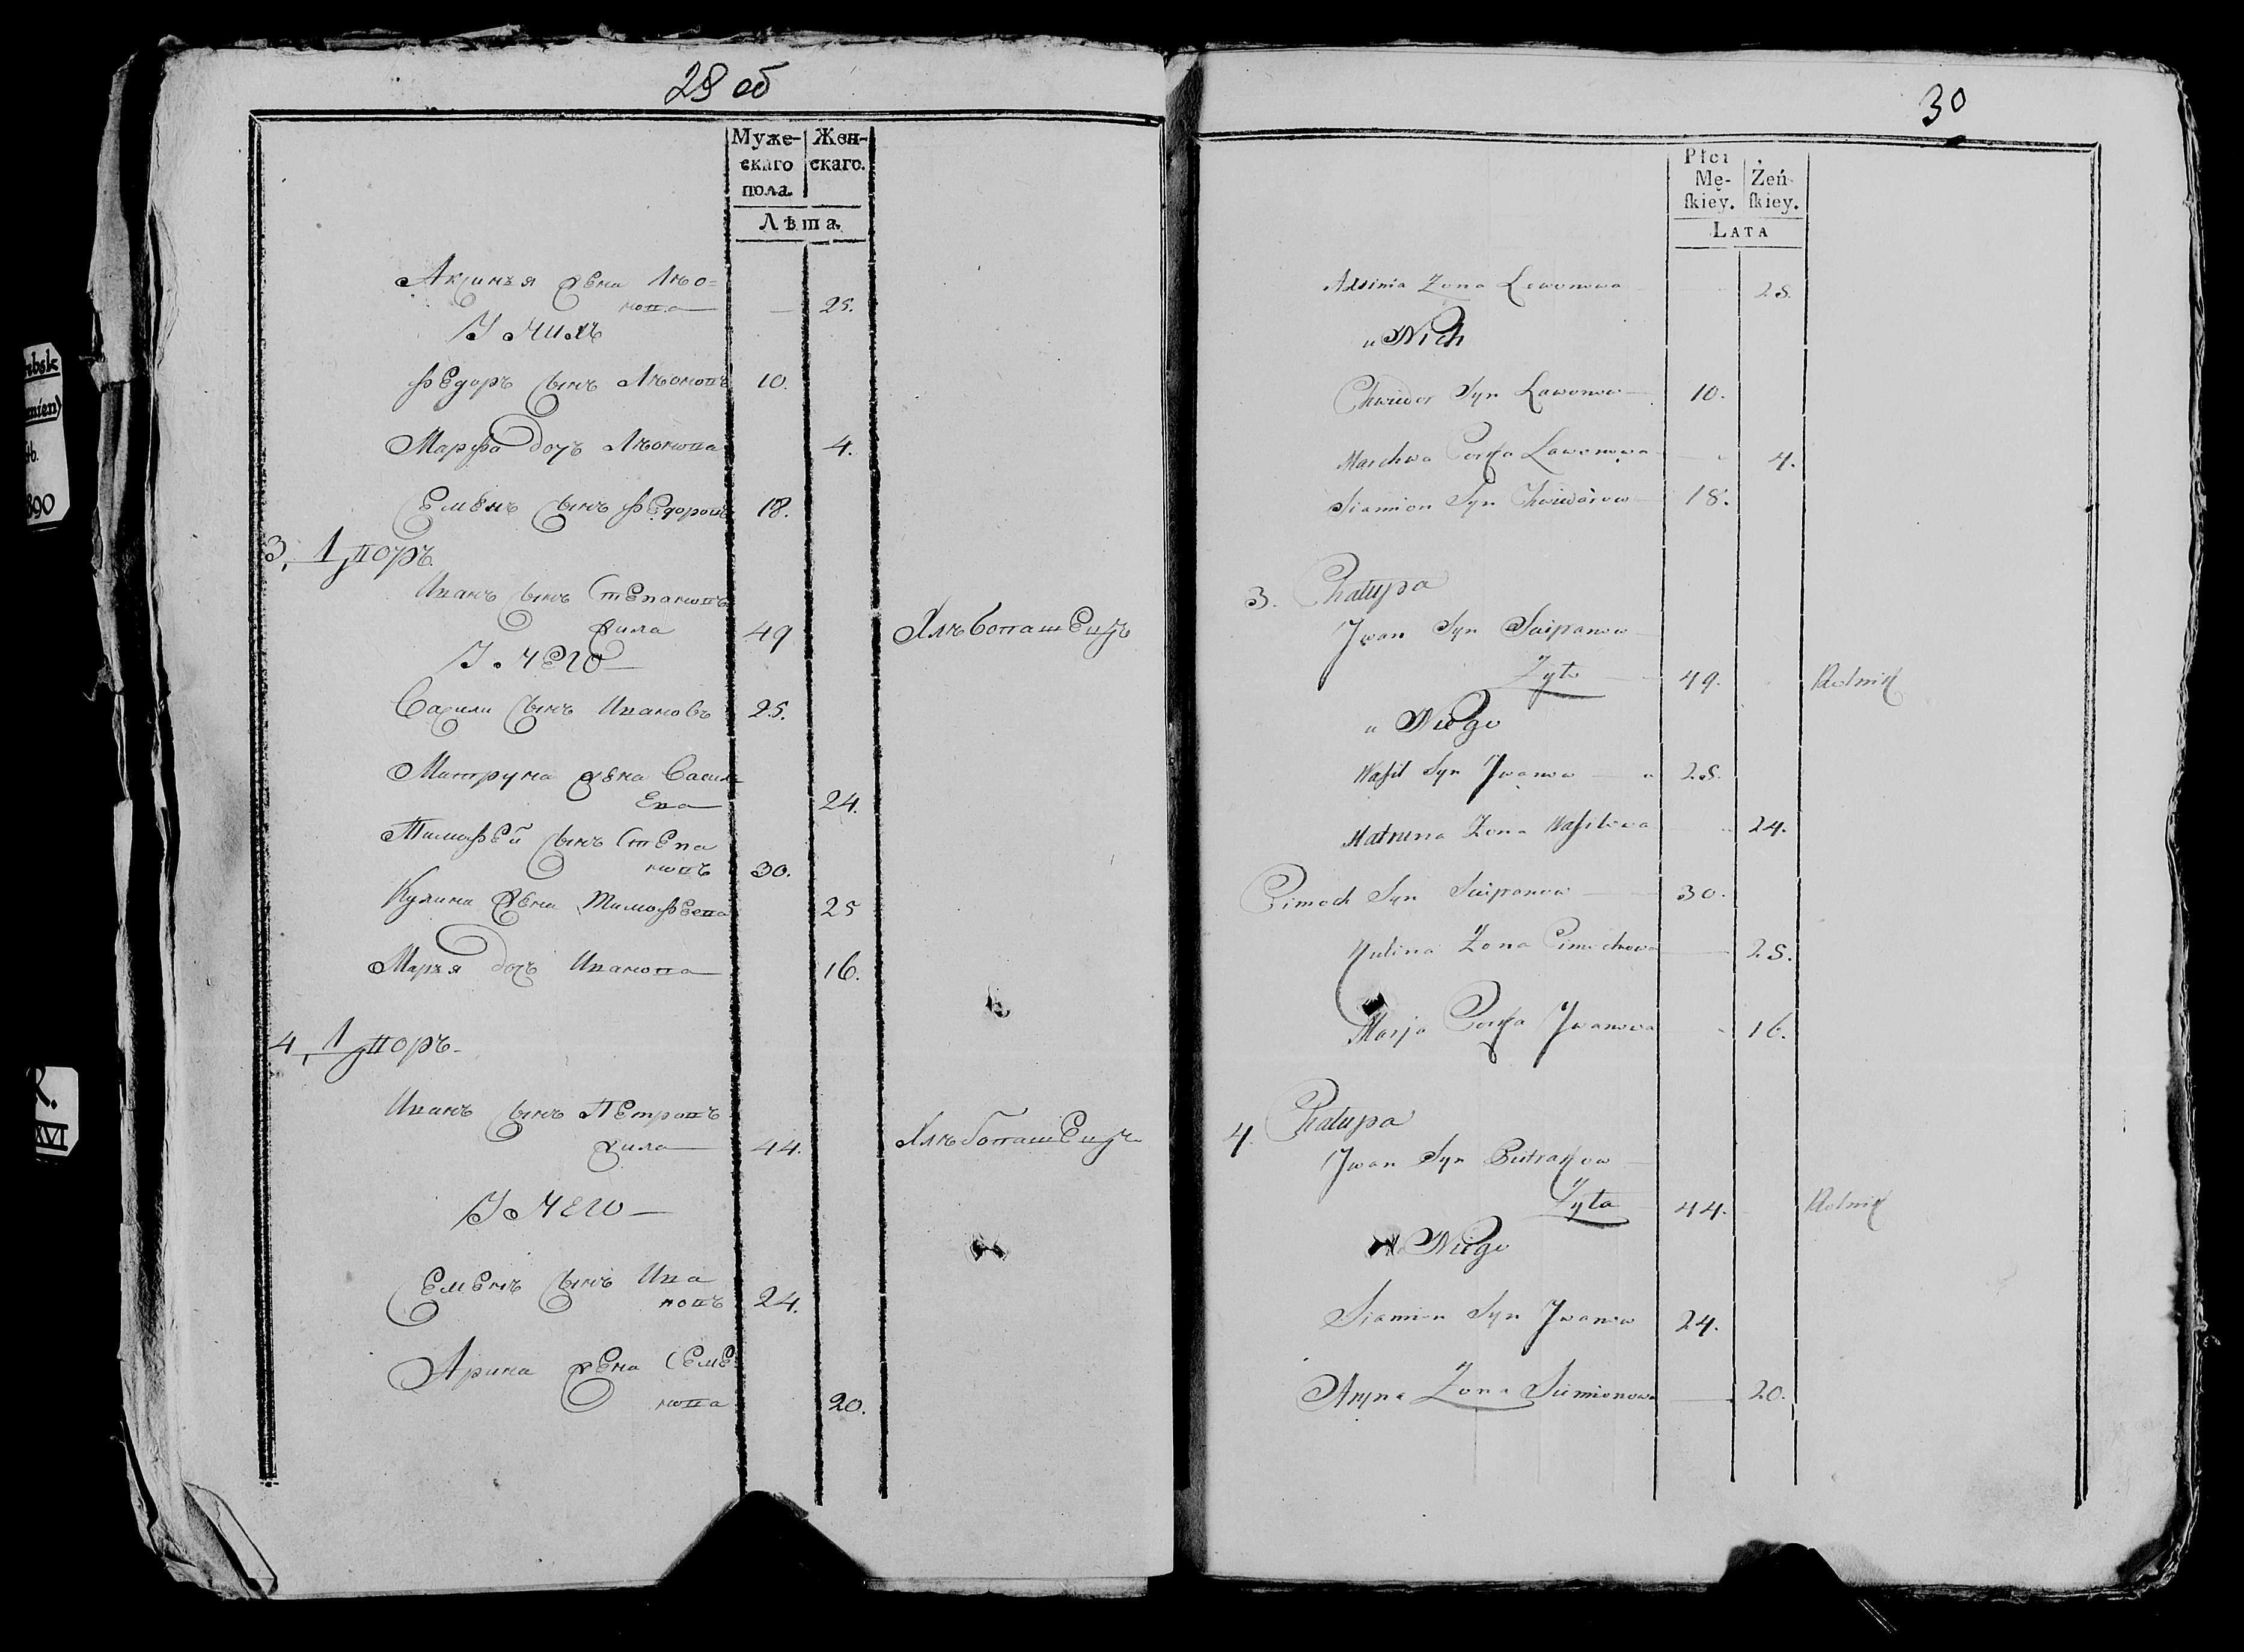 29 об
Муже-
скаго
пола.
Жен-
скаго.
Лѣта.
Аксинья жена Лѣо=
нова — 25.
У Нихъ
Федоръ сынъ Лѣоновъ 10.
Марфа дочь Лѣонова 4.
Семенъ сынъ Федоровъ 18.
3, 1 дворъ.
Иванъ сынъ Степановъ
жила 49 Хлѣбопашецъ
У Него
Василий сынъ Ивановъ 25.
Матруна жена Васил
ева 24.
Тимофей сынъ Степа
новъ 30.
Кулина жена Тимофеева 25
Марья дочь Иванова 16.
4, 1 дворъ.
Иванъ сынъ Петровъ
жила 44. Хлѣбопашецъ
У Него
Семенъ сынъ Ива
новъ 24.
Арина жена Семе
нова 20.
30
Płci
Mę-
skiey.
Żeń-
skiey.
LATA
Axinia Zona Lewonowa 25.
u Nich
Chwiedor Syn Lawonow 10.
Marchwa Corka Lawonowa 4.
Siamion Syn Chwiedorow 18.
3. Chalupa
Jwan Syn Sciepanow
Zyta 49. Rolnik
u Niego
Wasil Syn Jwanow 25.
Matruna Zona Wasilowa 24.
Cimoch Syn Sciepanow 30.
Kulina Zona Cimochowa 25.
Marja Corka Jwanowa 16.
4. Chalupa
Jwan Syn Pietrakow
Zyta 44. Rolnik
u Niego
Siamion Syn Jwanow 24.
Aryna Zona Siemionowa 20.